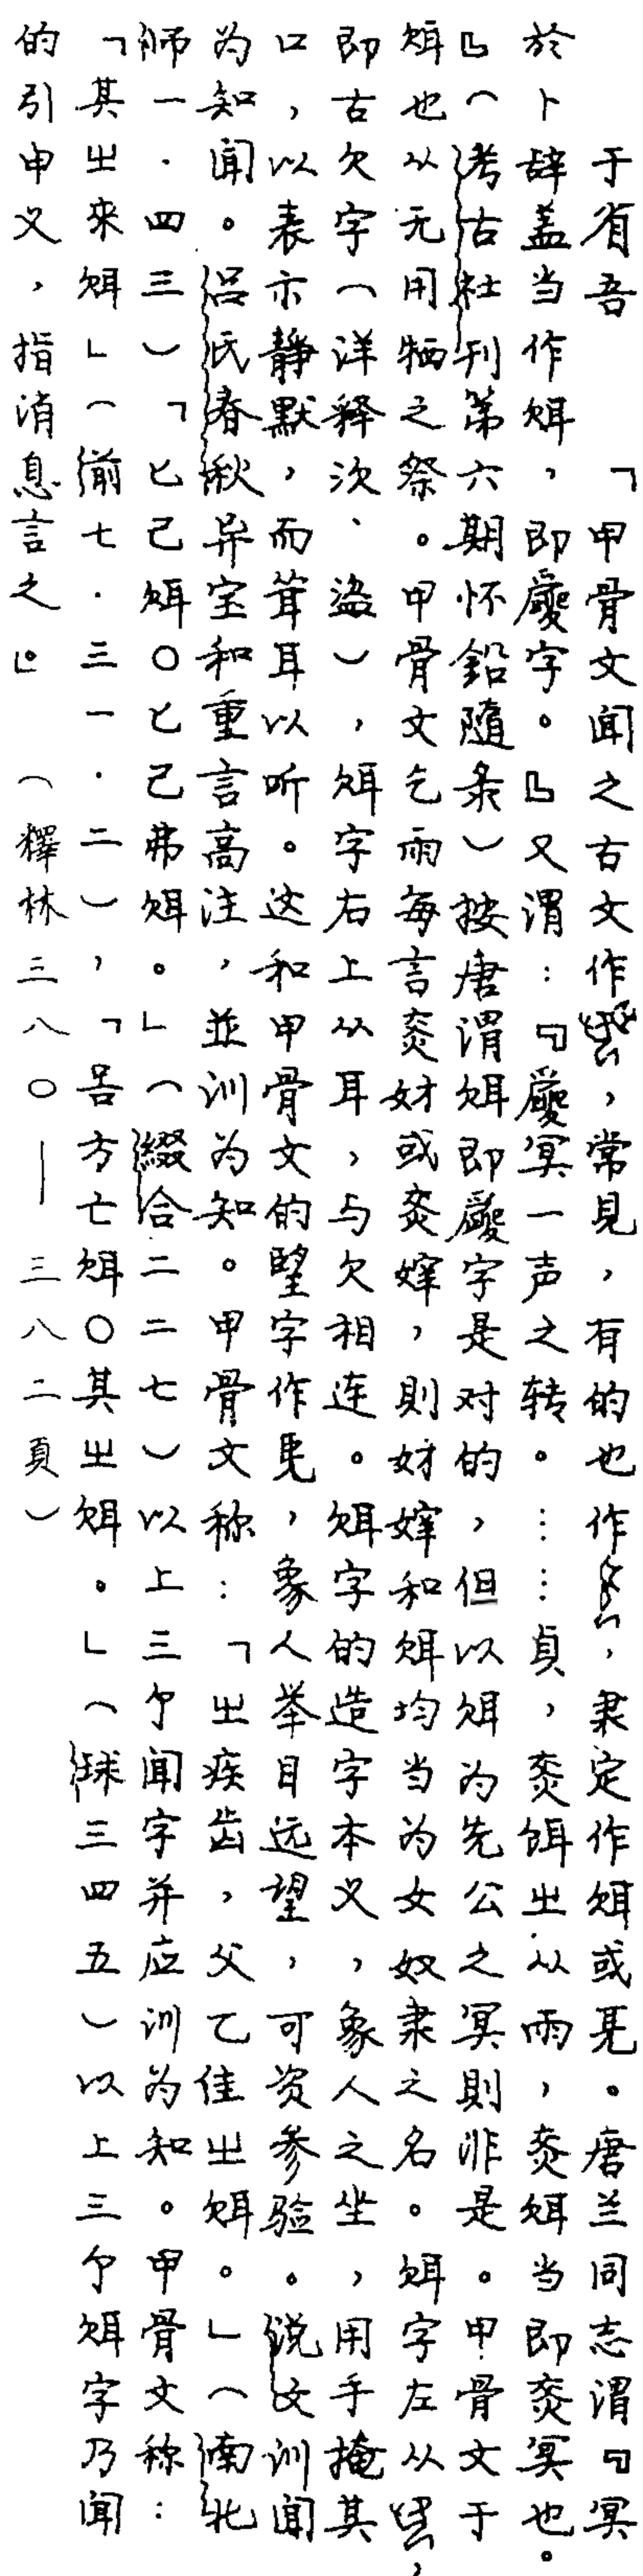 于省吾　「甲骨文闻之古文作，常见，有的也作，隶定作䎽或𦔻。唐兰同志谓『冥
於卜辞盖当作䎽，即夒字。』又谓：『夒冥一声之转。……贞，㶳䎽㞢从雨，㶳䎽当即㶳冥也。
』（考古社刊第六期怀铅随录）按唐谓䎽即夒字是对的，但以䎽为先公之冥则非是。甲骨文于
䎽也从无用牺之祭。甲骨文乞雨每言㶳妌或㶳婞，则妌婞和䎽均当为女奴隶之名。䎽字左从，
即古欠字（详释次、盗），䎽字右上从耳，与欠相连。䎽字的造字本义，象人之坐，用手掩其
口，以表示静默，而耸耳以听。这和甲骨文的望字作，象人举目远望，可资参验。说文训闻
为知闻。吕氏春秋异宝和重言高注，並训为知。甲骨文称：「㞢疾齿，父乙隹㞢䎽。」（南北
师一·四三）「乜己䎽〇乜己弗䎽。」（缀合二二七）以上三个闻字并应训为知。甲骨文称：
「其㞢来䎽」（前七·三一·二），「𠯑方亡䎽〇其㞢䎽。」（珠三四五）以上三个䎽字乃闻
的引申义，指消息言之」。　（释林三八〇——三八二页）